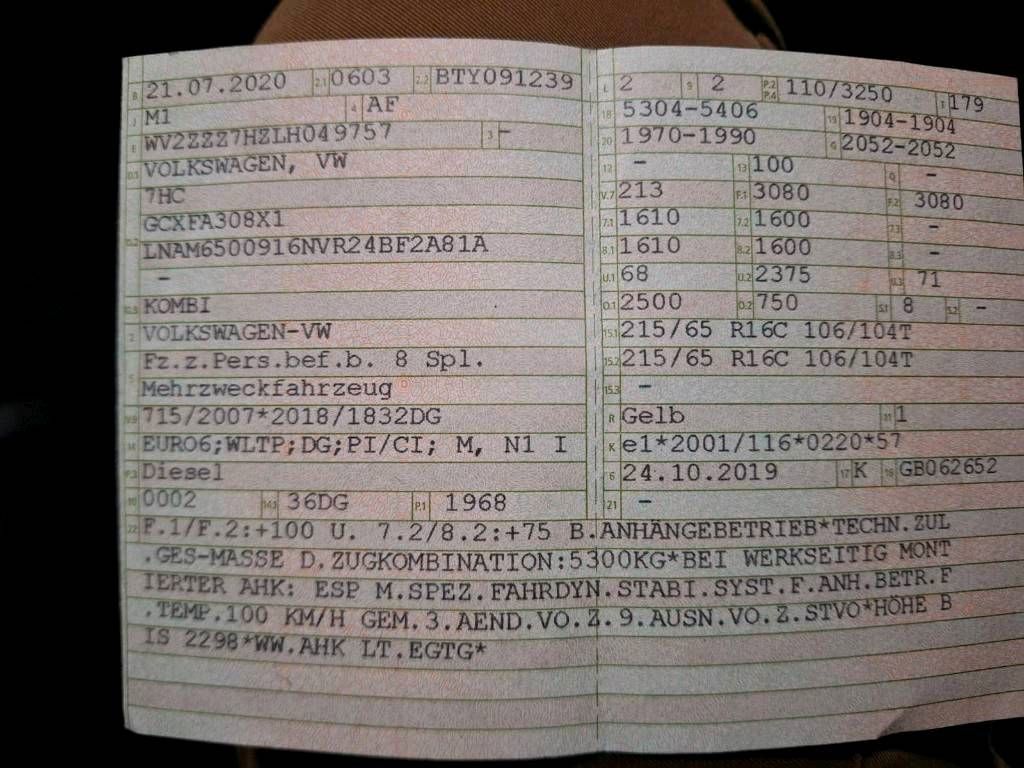 B 21.07.2020 2.1 0603 2.2 BTY091239
J M1 4 AF
E WV2ZZZ7HZLH049757 3 -
D.1 VOLKSWAGEN, VW
7HC
GCXFA308X1
D.2 LNAM6500916NVR24BF2A81A
-
D.3 KOMBI
2 VOLKSWAGEN-VW
Fz.z.Pers.bef.b. 8 Spl.
5 Mehrzweckfahrzeug
V.9 715/2007*2018/1832DG
14 EURO6;WLTP;DG;PI/CI; M, N1 I
P.3 Diesel
10 0002 14.1 36DG P.1 1968
L 2 9 2 P.2 P.4 110/3250 T 179
18 5304-5406 19 1904-1904
20 1970-1990 G 2052-2052
12 - 13 100 Q -
V.7 213 F.1 3080 F.2 3080
7.1 1610 7.2 1600 7.3 -
8.1 1610 8.2 1600 8.3 -
U.1 68 U.2 2375 U.3 71
O.1 2500 O.2 750 S.1 8 S.2 -
15.1 215/65 R16C 106/104T
15.2 215/65 R16C 106/104T
15.3 -
R Gelb 11 1
K e1*2001/116*0220*57
6 24.10.2019 17 K 16 GB062652
21 -
22 F.1/F.2:+100 U. 7.2/8.2:+75 B.ANHÄNGEBETRIEB*TECHN.ZUL
.GES-MASSE D.ZUGKOMBINATION:5300KG*BEI WERKSEITIG MONT
IERTER AHK: ESP M.SPEZ.FAHRDYN.STABI.SYST.F.ANH.BETR.F
.TEMP.100 KM/H GEM.3.AEND.VO.Z.9.AUSN.VO.Z.STVO*HÖHE B
IS 2298*WW.AHK LT.EGTG*